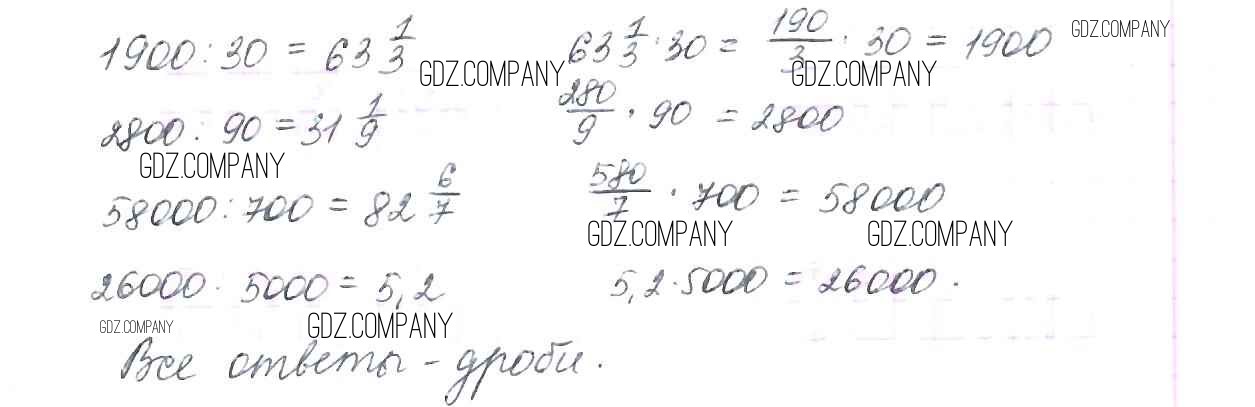 1900 : 30 = 63 1/3   63 1/3 · 30 = 190/3 · 30 = 1900 GDZ.COMPANY
GDZ.COMPANY GDZ.COMPANY
2800 : 90 = 31 1/9   280/9 · 90 = 2800
GDZ.COMPANY
58000 : 700 = 82 6/7   580/7 · 700 = 58000
GDZ.COMPANY GDZ.COMPANY
26000 · 5000 = 5,2   5,2 · 5000 = 26000.
GDZ.COMPANY GDZ.COMPANY
Все ответы - дроби.